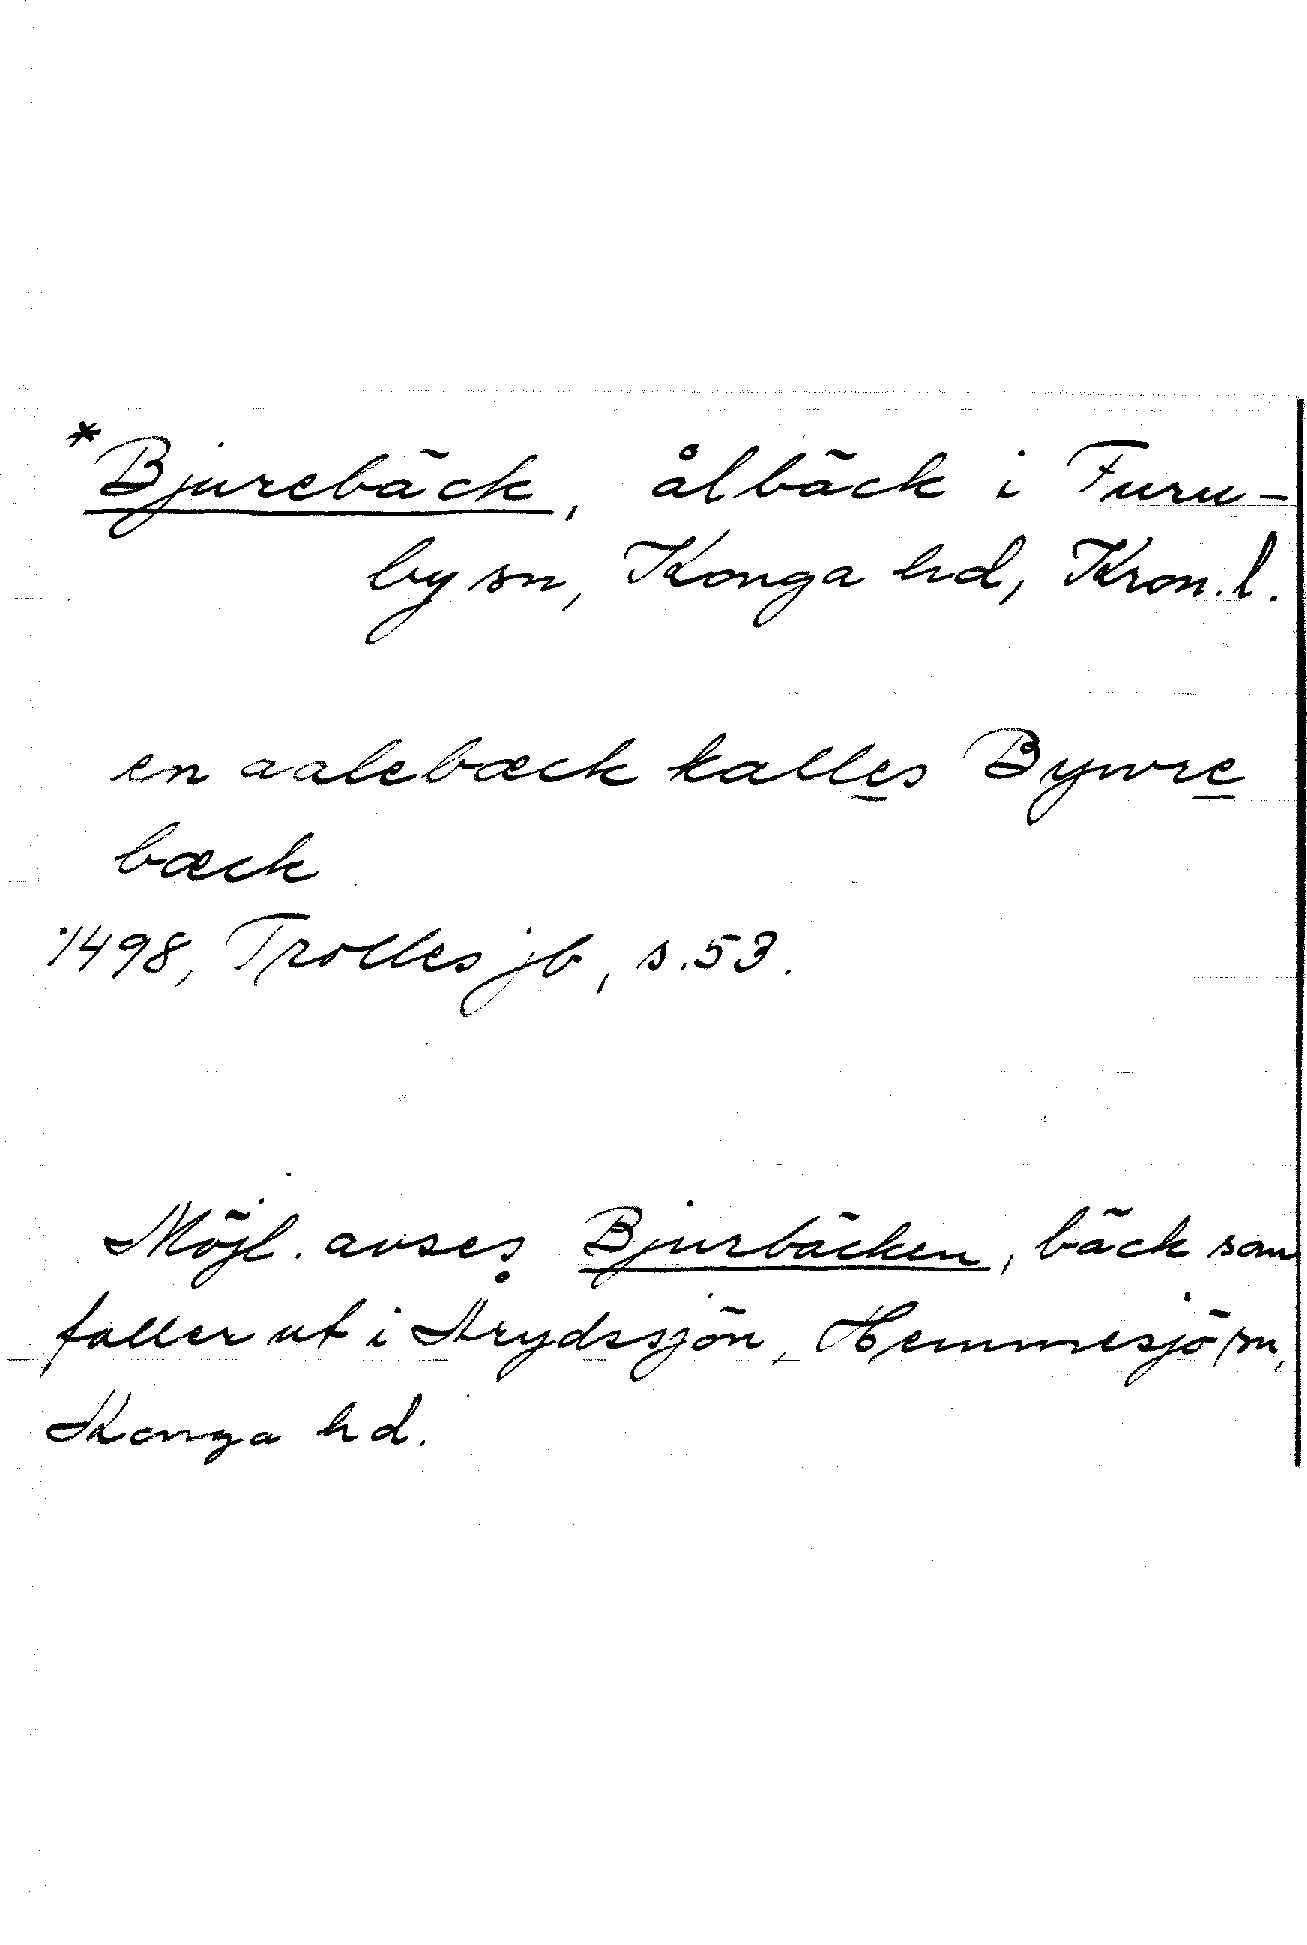 *Bjurebäck, ålbäck i Furu-
by sn, Konga hd, Kron.l.
en aalebæck kalles Bywre
bæck
1498, Trolles jb, s.53.
Möjl. avses Bjurbäcken, bäck som
faller ut i Årydssjön, Hemmesjö sn,
Konga hd.